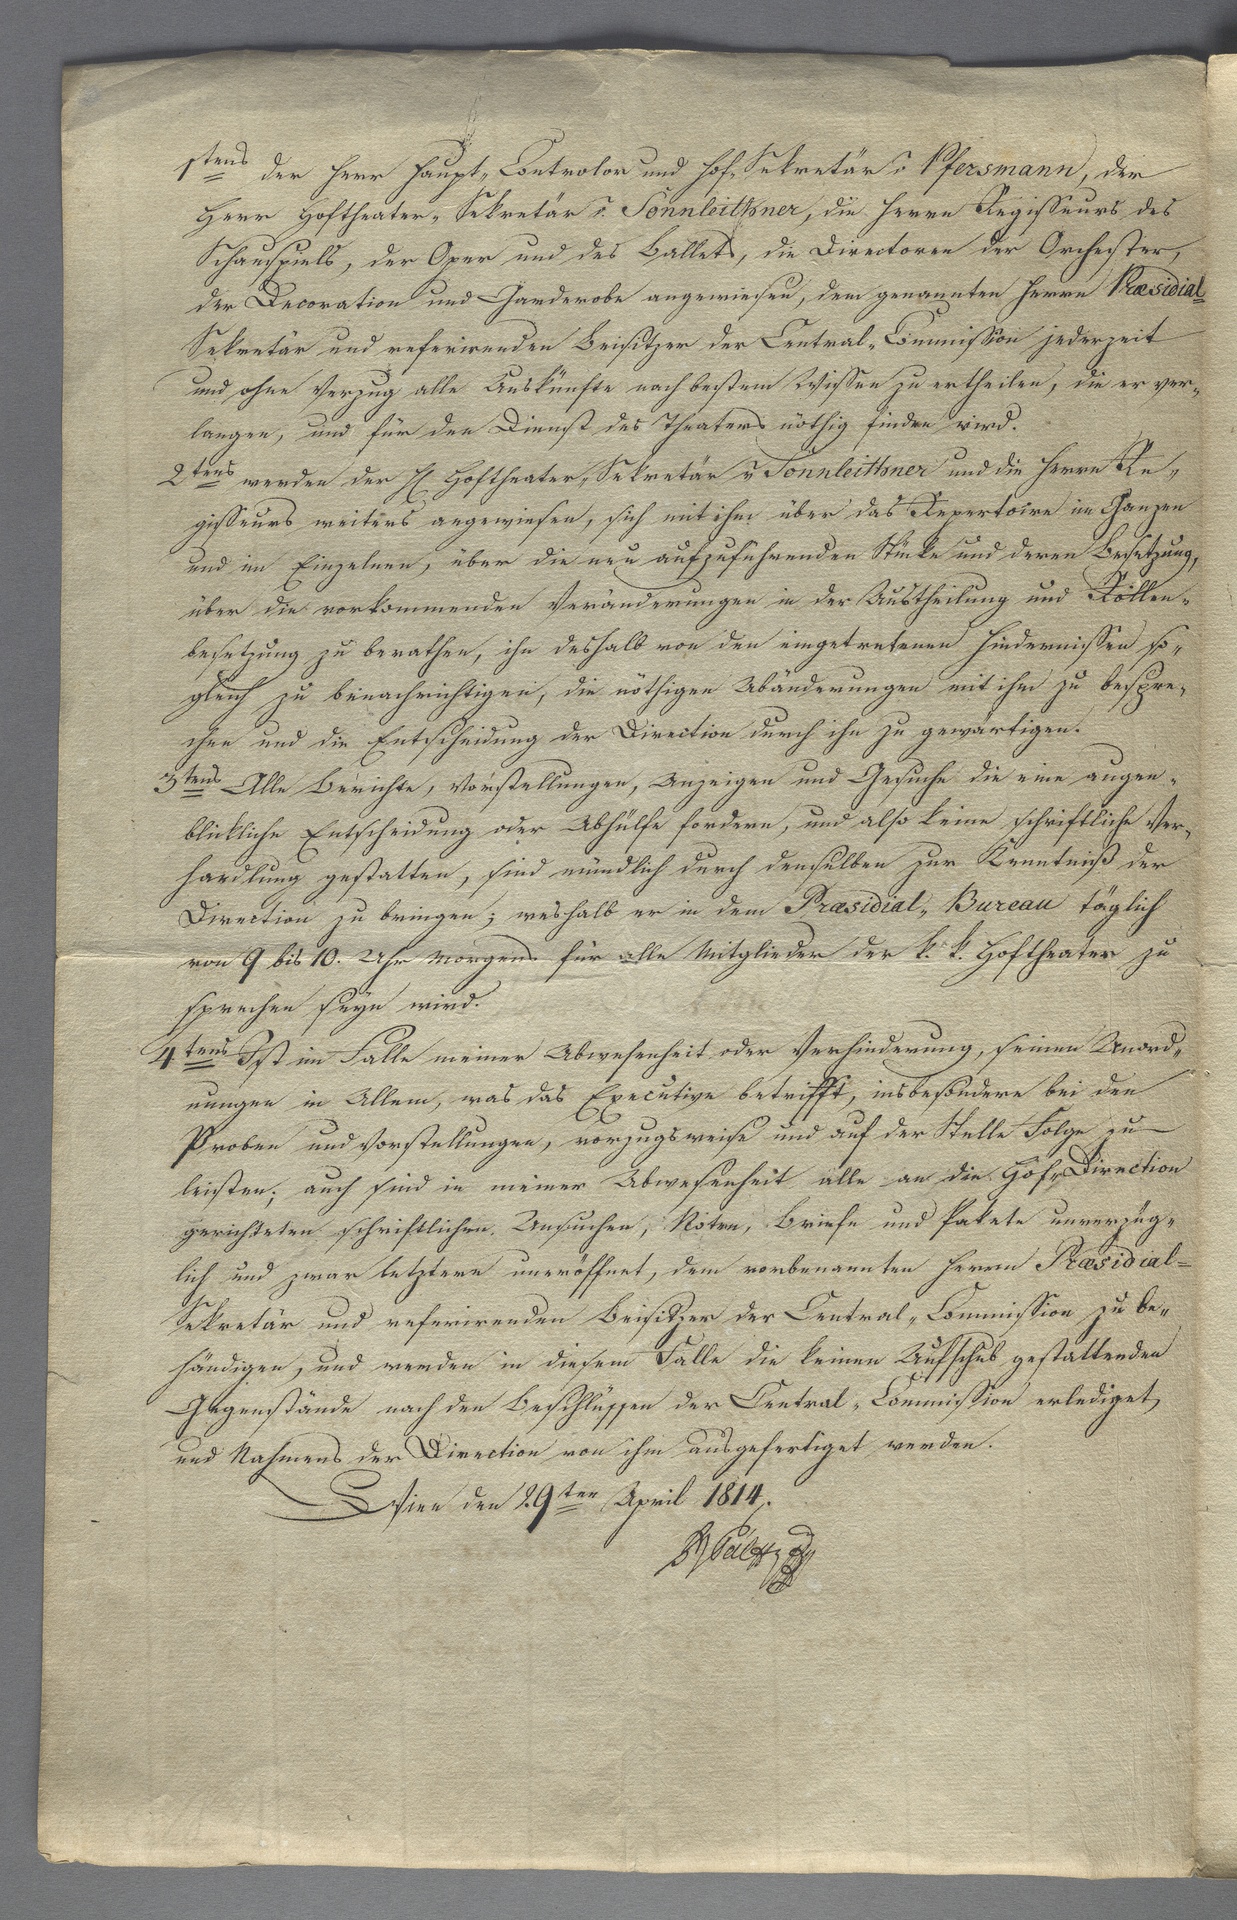 1tens der Herr Haupt-Controlor und Hof-Sekretär v. Pfersmann, der
Herr Hoftheater-Sekretär v. Sonnleithner, die Herrn Regisseurs des
Schauspiels, der Oper und des Ballets, die Directoren der Orchester,
der Decoration und Garderobe angewiesen, dem genannten Herrn Præsidial-
Sekretär und referirenden Beisitzer der Central-Commission jederzeit
und ohne Verzug alle Auskünfte nach bestem Wissen zu ertheilen, die er ver-
langen, und für den Dienst des Theaters nöthig finden wird.
2tens werden der H. Hoftheater-Sekretär v Sonnleithner und die Herrn Re-
gisseurs weiters angewiesen, sich mit ihm über das Repertoire im Ganzen
und im Einzelnen, über die neu aufzuführenden Stücke und deren Besetzung,
über die vorkommenden Veränderungen in der Austheilung und Rollen-
besetzung zu berathen, ihn deshalb von den eingetretenen Hindernissen so-
gleich zu benachrichtigen, die nöthigen Abänderungen mit ihm zu bespre-
chen und die Entscheidung der Direction durch ihn zu gewärtigen.
3tens Alle Berichte, Vorstellungen, Anzeigen und Gesuche die eine augen-
blickliche Entscheidung oder Abhülfe fordern, und also keine schriftliche Ver-
handlung gestatten, sind mündlich durch denselben zur Kenntniß der
Direction zu bringen; weshalb er in dem Præsidial-Bureau täglich
von 9 bis 10. Uhr Morgens für alle Mitglieder der k. k. Hoftheater zu
sprechen seyn wird.
4tens Ist im Falle meiner Abwesenheit oder Verhinderung, seinen Anord-
nungen in Allem, was das Executive betrifft, insbesondere bei den
Proben und Vorstellungen, vorzugsweise und auf der Stelle Folge zu
leisten; auch sind in meiner Abwesenheit alle an die Hof-Direction
gerichteten schriftlichen Ansuchen, Noten, Briefe und Pakete unverzüg-
lich und zwar letztere uneröffnet, dem vorbenannten Herrn Præsidial-
Sekretär und referirenden Beisitzer der Central-Commission zu be-
händigen, und werden in diesem Falle die keinen Aufschub gestattenden
Gegenstände nach den Beschlüssen der Central-Commission erlediget,
und Nahmens der Direction von ihm ausgefertiget werden.
Wien den 29ten April 1814.